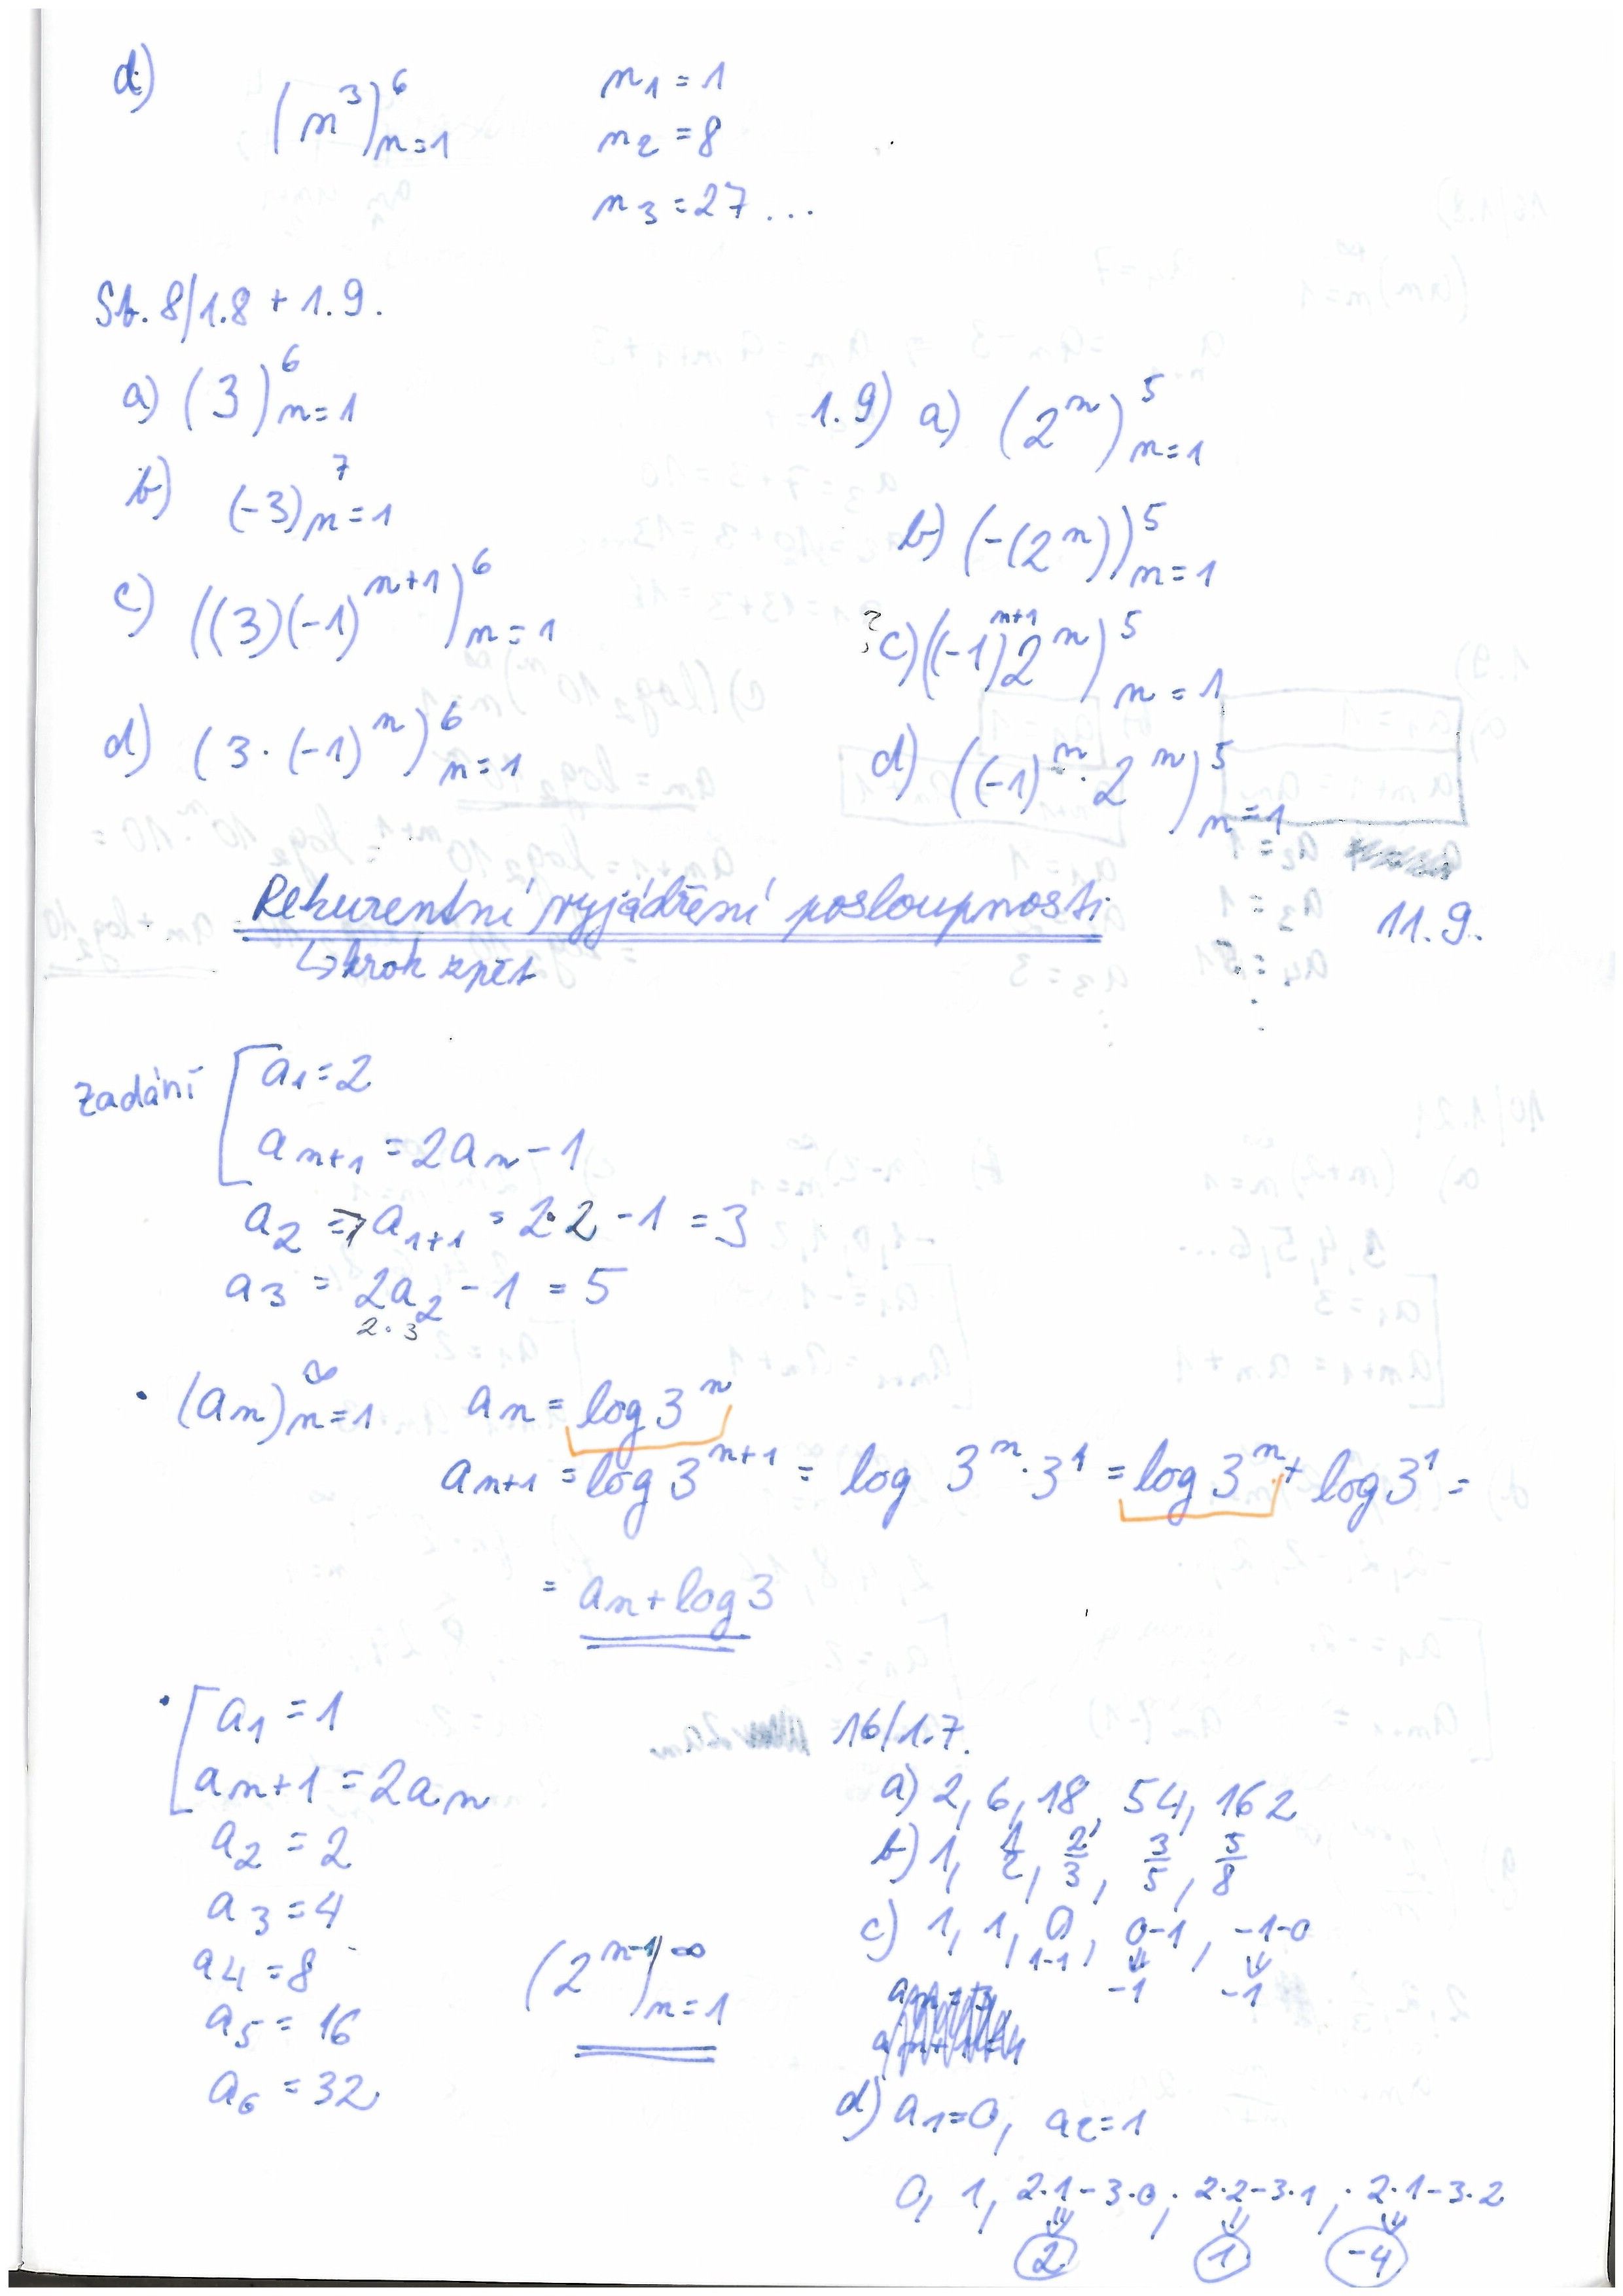 d) (n³)⁶ₙ₌₁ n₁ = 1
n₂ = 8
n₃ = 27...
St. 8/1.8 + 1.9.
a) (3)⁶ₙ₌₁
b) (-3)⁷ₙ₌₁
c) ((3)(-1)ⁿ⁺¹)⁶ₙ₌₁
d) (3·(-1)ⁿ)⁶ₙ₌₁
1.9) a) (2ⁿ)⁵ₙ₌₁
b) (-(2ⁿ))⁵ₙ₌₁
? c) ((-1)ⁿ⁺¹2ⁿ)⁵ₙ₌₁
d) ((-1)ⁿ·2ⁿ)⁵ₙ₌₁
Rekurentní vyjádření posloupnosti 11.9.
↳ krok zpět
zadání [a₁ = 2
aₙ₊₁ = 2aₙ - 1
a₂ => a₁₊₁ = 2·2 - 1 = 3
a₃ = 2a₂ - 1 = 5
2·3
· (aₙ)^∞ₙ₌₁ aₙ = log 3ⁿ
aₙ₊₁ = log 3ⁿ⁺¹ = log 3ⁿ·3¹ = log 3ⁿ + log 3¹ =
= aₙ + log 3
· [a₁ = 1
aₙ₊₁ = 2aₙ
a₂ = 2
a₃ = 4
a₄ = 8
a₅ = 16
a₆ = 32
(2ⁿ⁻¹)^∞ₙ₌₁
16/1.7.
a) 2, 6, 18, 54, 162
b) 1, 1/2, 2/3, 3/5, 5/8
c) 1, 1, 0, 0-1, -1-0
1-1, ⇓ ⇓
-1 -1
d) a₁=0, a₂=1
0, 1, 2·1-3·0, 2·2-3·1, 2·1-3·2
⇓ ⇓ ⇓
2 1 -4